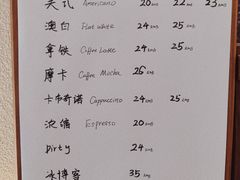 美式 Americano 20 22 23
澳白 Flat White 24 25
拿铁 Coffee Latte 24 25
摩卡 Coffee Mocha 26
卡布奇诺 Cappuccino 24 25
浓缩 Espresso 20
Dirty 24
冰博客 35